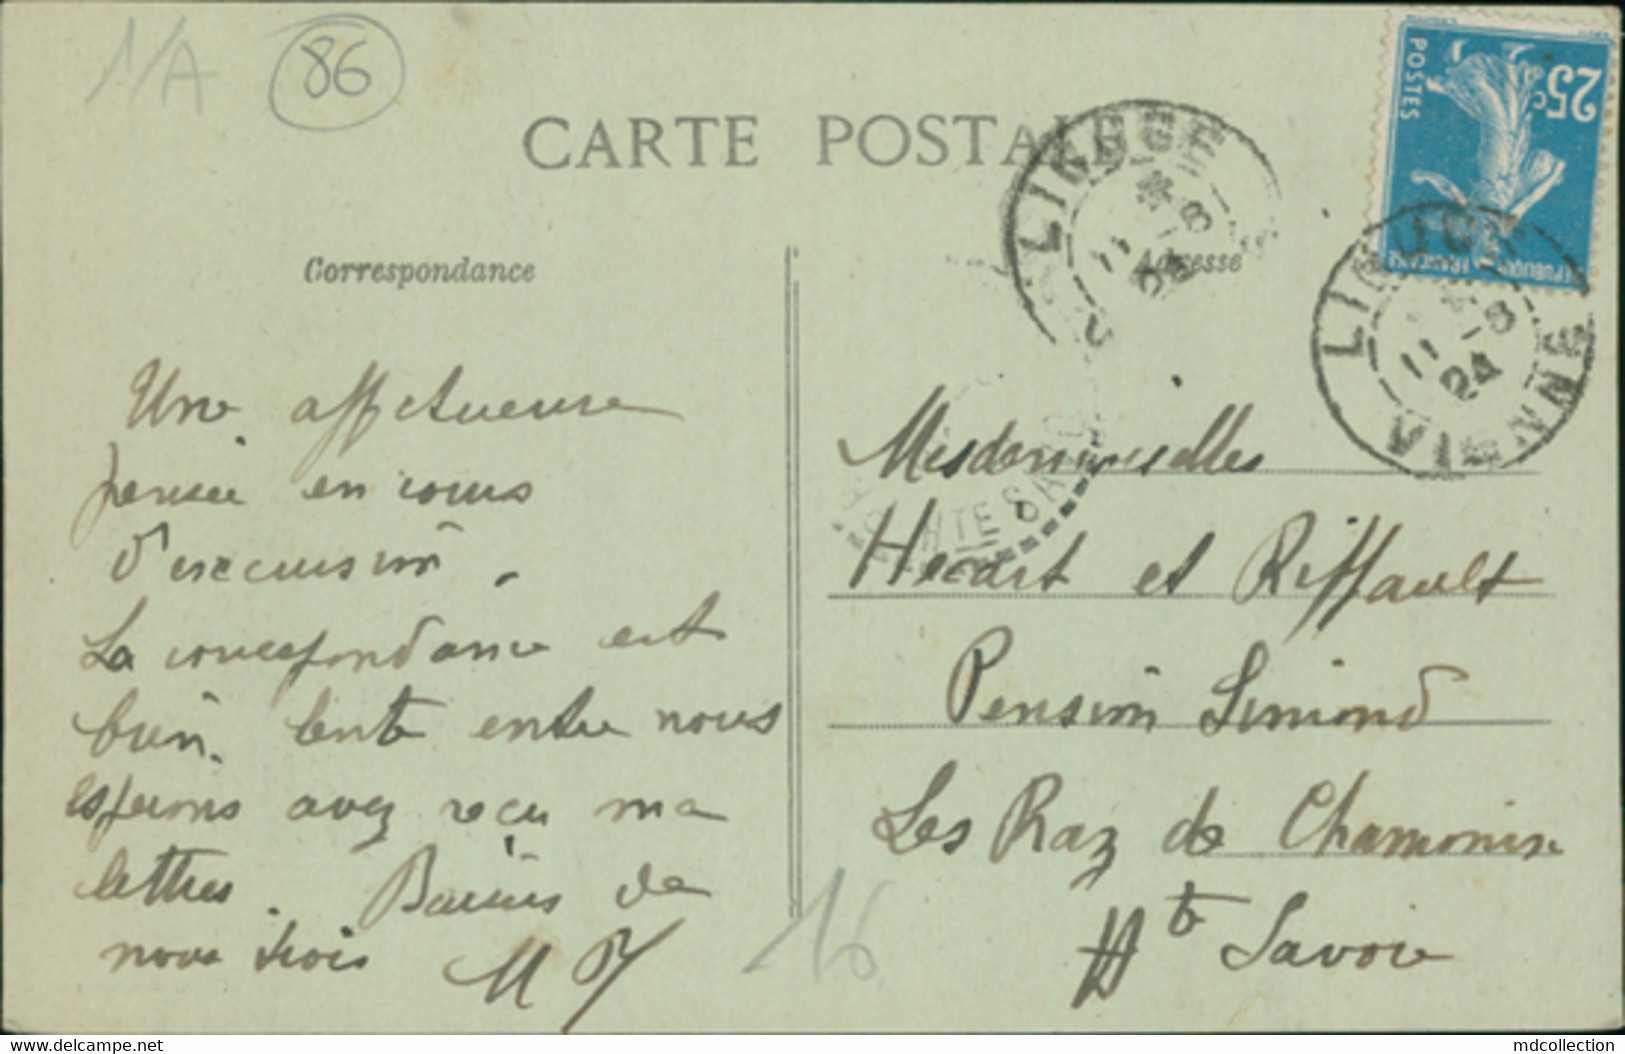 1/A 86
CARTE POSTALE
Correspondance
Adresse
25c
POSTES
REPUBLIQUE FRANCAISE
LIGUGE
11-8
24
LIGUGE
11-8
24
VIENNE
HTE SAVOIE
Une affectueuse
pensée en cours
d'excursion.
La correspondance est
bien lente entre nous
espérons avez reçu ma
lettres. Baisers de
nous trois
Mesdemoiselles
Hecart et Riffault
Pension Simond
Les Praz de Chamonix
Hte Savoie
16
www.delcampe.net
mdcollection